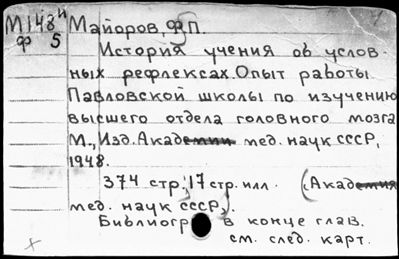 М148и Майоров, Ф.П.
ф 5
История учения об услов-
ных рефлексах. Опыт работы
Павловской школы по изучению
высшего отдела головного мозга
М., Изд. Академии мед. наук СССР,
1948.
374 стр.; 17 стр. илл. (Академия
мед. наук СССР).
Библиогр в конце глав.
см. след. карт.